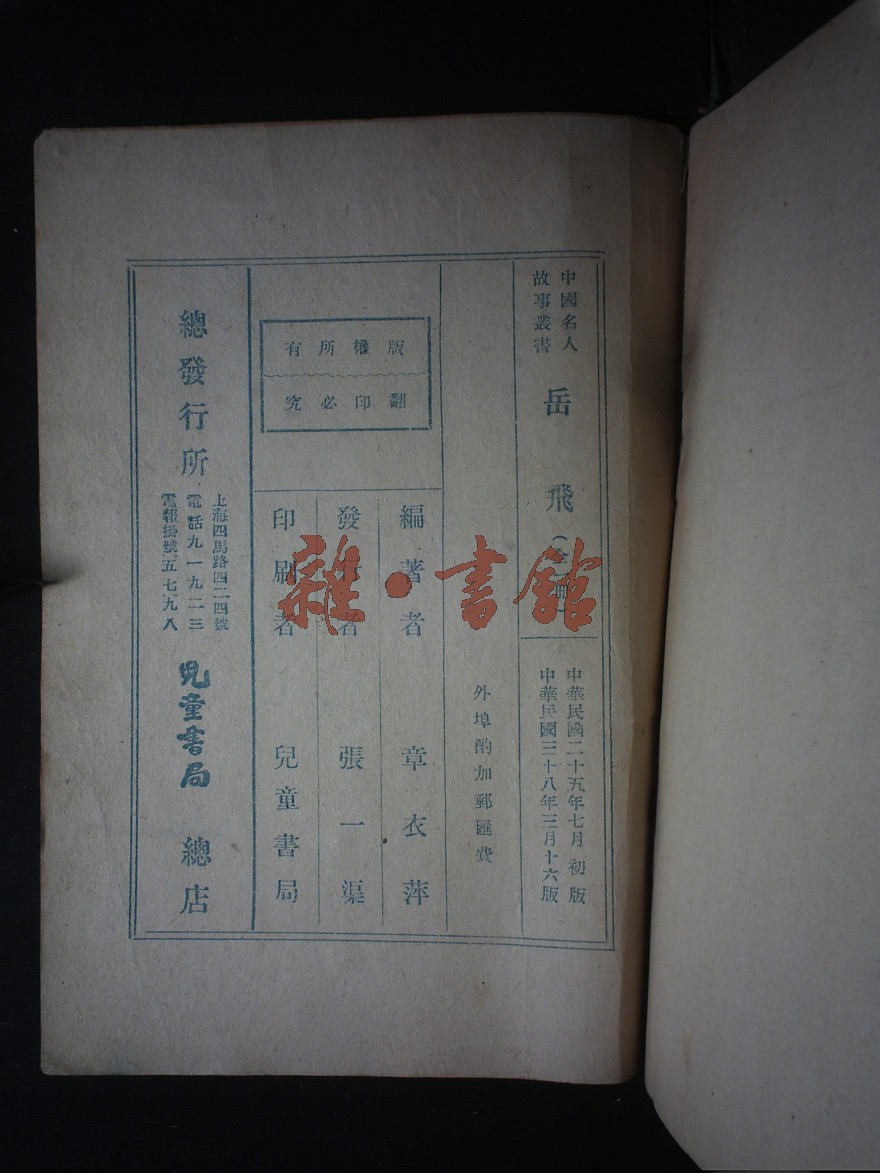 中國名人
故事叢書
岳飛（全一冊）
中華民國二十五年七月初版
中華民國三十八年三月十六版
外埠酌加郵匯費
版權所有
翻印必究
編著者 章衣萍
發行者 張一渠
印刷者 兒童書局
總發行所
上海四馬路四二四號
電話九一九二三
電報掛號五七九八
兒童書局 總店
雜·書館